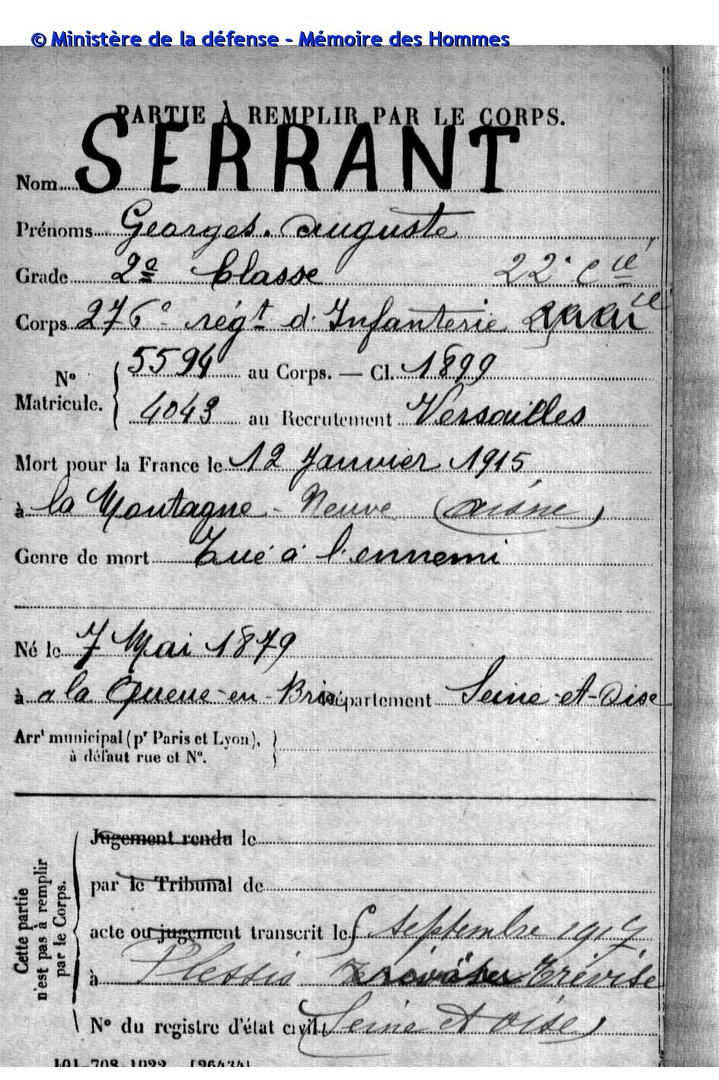 © Ministère de la défense - Mémoire des Hommes
PARTIE À REMPLIR PAR LE CORPS.
Nom SERRANT
Prénoms Georges. Auguste
Grade 2e Classe 22e Cie
Corps 276e régt d'Infanterie
N° Matricule. 5594 au Corps. — Cl. 1899
4043 au Recrutement Versailles
Mort pour la France le 12 Janvier 1915
à la Montagne - Neuve (Aisne)
Genre de mort Tué à l'ennemi
Né le 7 Mai 1879
à a la Queue-en-Brie Département Seine-et-Oise
Arrt municipal (pr Paris et Lyon),
à défaut rue et N°.
Cette partie n'est pas à remplir par le Corps.
Jugement rendu le
par le Tribunal de
acte ou jugement transcrit le Septembre
à Plessis Trévise
N° du registre d'état civil (Seine et Oise)
101-708-1922. [26434]